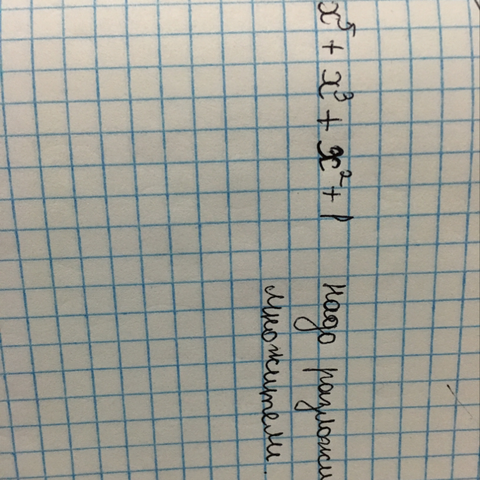 x⁵ + x³ + x² + 1 Надо разложи
множители.